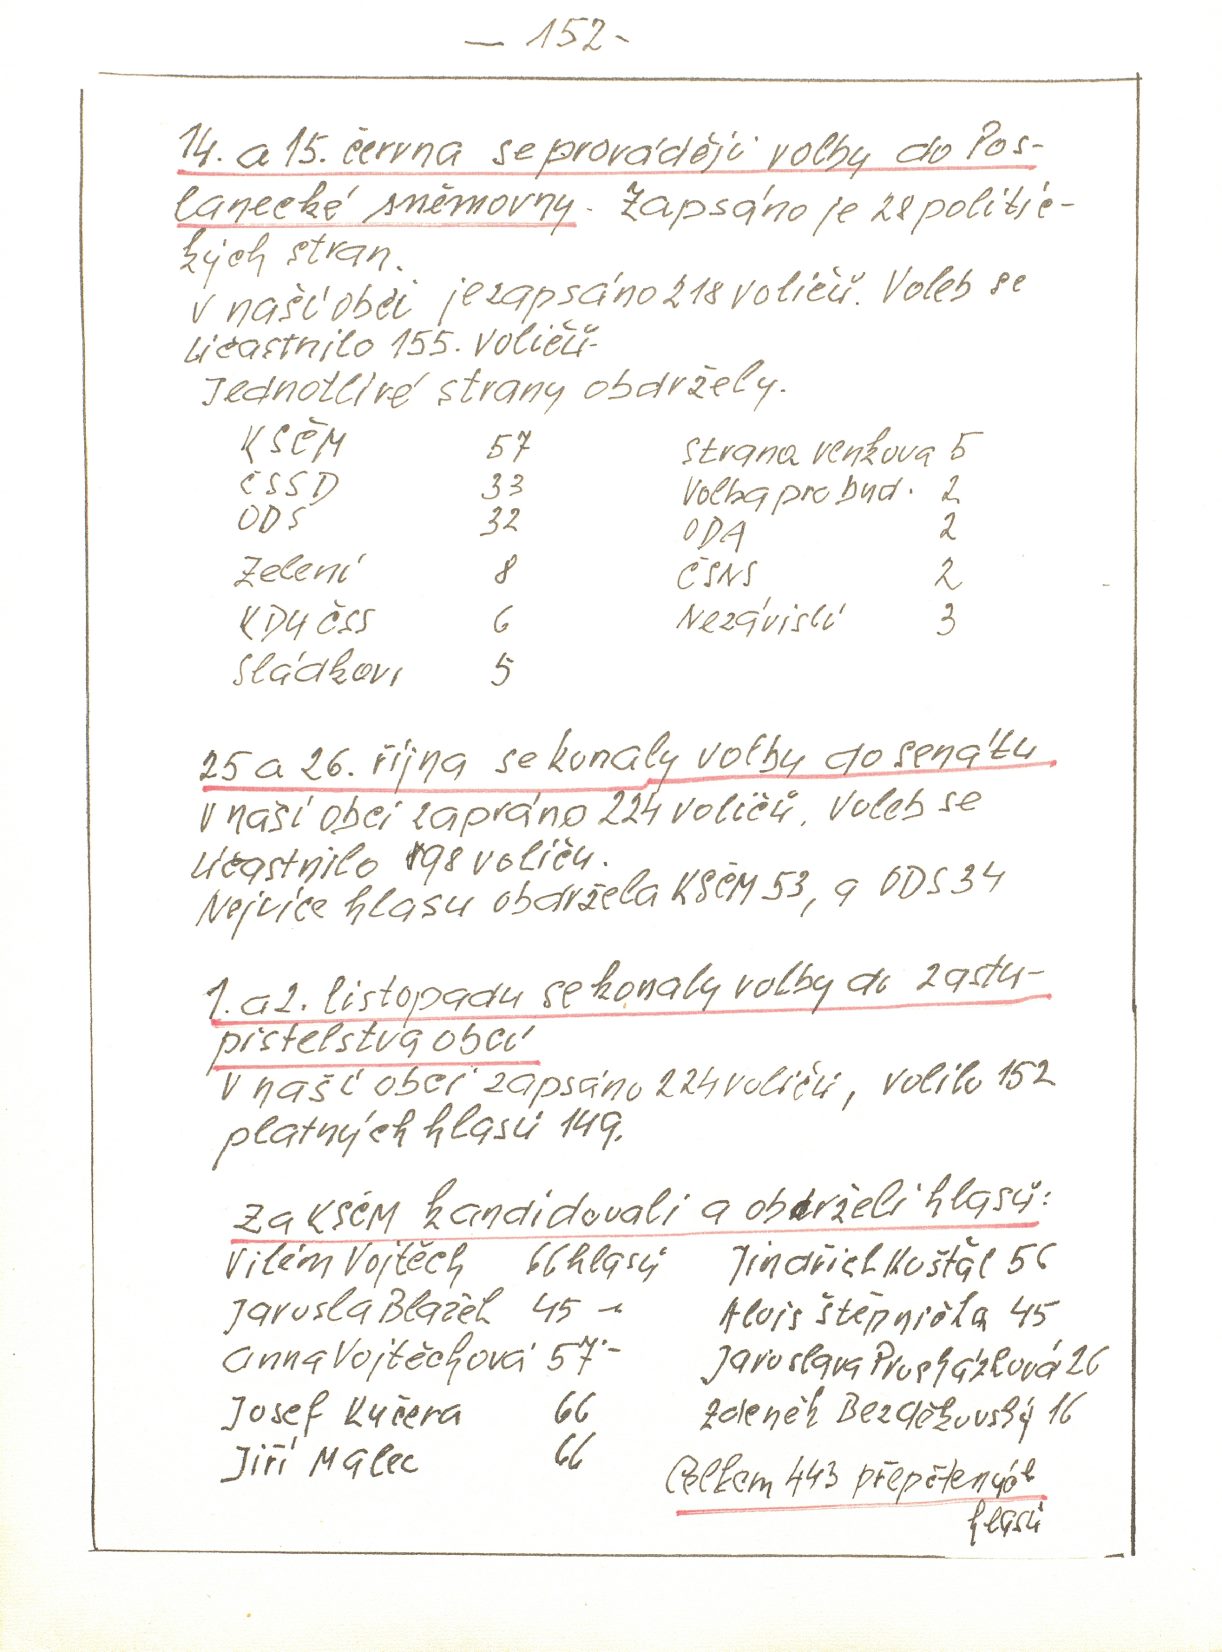 — 152 -
14. a 15. června se provádějí volby do Pos-
lanecké sněmovny. Zapsáno je 28 politic-
kých stran.
V naší obci je zapsáno 218 voličů. Voleb se
účastnilo 155. voličů.
Jednotlivé strany obdržely.
KSČM 57 Strana venkova 5
ČSSD 33 Volba pro bud. 2
ODS 32 ODA 2
Zelení 8 ČSNS 2
KDU ČSS 6 Nezávislí 3
Sládkovi 5
25 a 26. října se konaly volby do senátu
V naší obci zapsáno 224 voličů. Voleb se
účastnilo 98 voliču.
Nejvíce hlasu obdržela KSČM 53, a ODS 34
1. a 2. listopadu se konaly volby do zastu-
pistelstva obcí
V naší obci zapsáno 224 voličů, volilo 152
platných hlasů 149.
Za KSČM kandidovali a obdrželi hlasů:
Vilém Vojtěch 66 hlasů Jindřich Koštál 56
Jarosla Blažek 45 -" Alois Štěpnička 45
Anna Vojtěchová 57 - Jaroslava Procházková 26
Josef Kučera 66 Zdeněk Bezděkovský 16
Jiří Malec 66 Celkem 443 přepčtených
hlasů